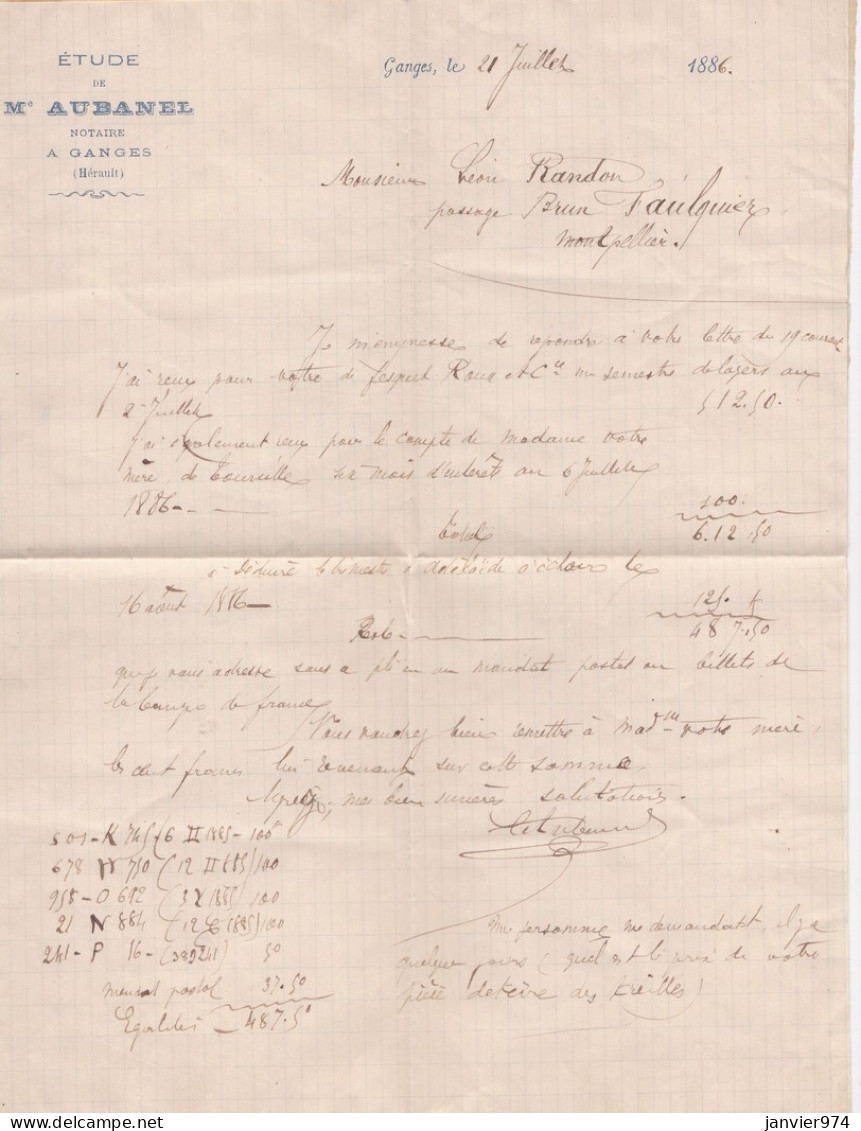 ÉTUDE
DE
Me AUBANEL
NOTAIRE
A GANGES
(Hérault)
Ganges, le 21 Juillet 1886.
Monsieur Léon Randon
passage Brun Faulquier
Montpellier.
Je m'empresse de repondre à votre lettre du 19 courant
J'ai reçu pour votre Roux et Cie un semestre de loyers au
2 Juillet 512.50.
J'ai également reçu pour le compte de Madame votre
mère, de six mois d'interêts au 6 Juillet
1886 - - 100.
Total 6.12.50
à Adélaïde le
16 août 1886 - 125. f
Reste - 487.50
que je vous adresse sous ce pli en un mandat postal ou billets de
la banque de france
Vous voudrez bien remettre à Made votre mère,
les cent francs lui revenant sur cette somme.
Agréez, mes bien sincères salutations.
501 - K 745 (6 II 1885 - 100
678 W 750 (12 II 1885) 100
958 - O 612 (3 1885) 100
21 N 884 (12 1885) 100
241 - P 16 - (389241) 50
mandat postal 37.50
487.50
une personne me demandait, il y a
quelques jours (quel est le prix de votre
pièce de terre des treilles)
janvier974